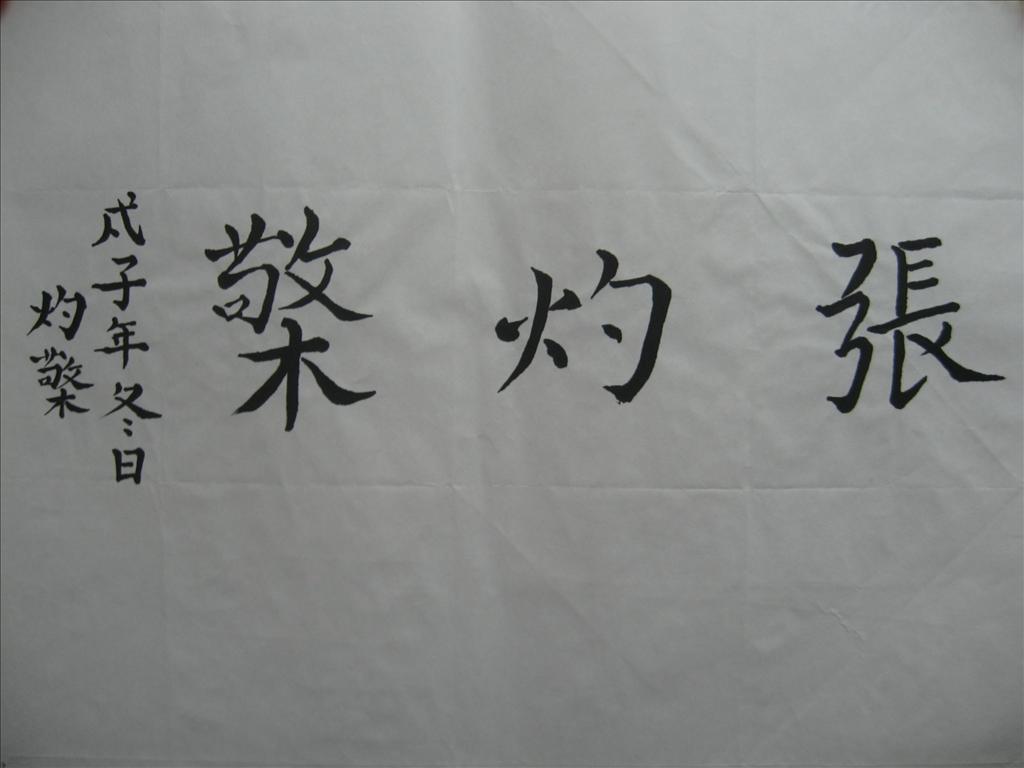 張灼檠
戊子年冬日
灼檠